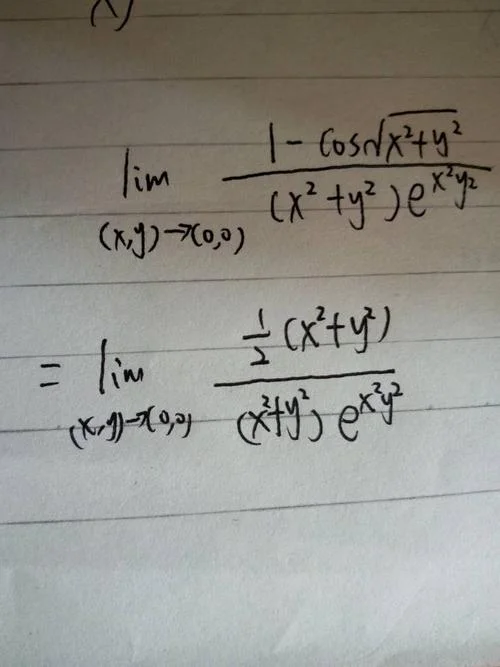 lim_{(x,y)→(0,0)} \frac{1 - cos\sqrt{x^2+y^2}}{(x^2+y^2)e^{x^2y^2}}
= lim_{(x,y)→(0,0)} \frac{\frac{1}{2}(x^2+y^2)}{(x^2+y^2)e^{x^2y^2}}